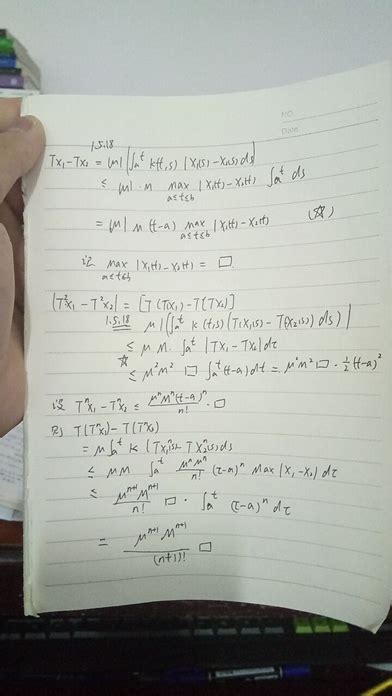 NO.
Date
1.5.18
Tx₁-Tx₂ = |μ| |∫ₐᵗ k(t,s) |x₁(s)-x₂(s) ds|
≤ |μ|·M max_{a≤t≤b} |x₁(t)-x₂(t) ∫ₐᵗ ds
= |μ| M (t-a) max_{a≤t≤b} |x₁(t)-x₂(t) (☆)
记 max_{a≤t≤b} |x₁(t)-x₂(t) = □.
|T²x₁-T²x₂| = [T(Tx₁)-T(Tx₂)]
1.5.18 μ|(∫ₐᵗ k(t,s)(Tx₁(s)-T(x₂(s)) ds)|
≤ μ M. ∫ₐᵗ |Tx₁-Tx₂| dτ
☆ ≤ μ²M² □ ∫ₐᵗ(t-a)dt = μ²M² □·½(t-a)²
设 Tⁿx₁-Tⁿx₂ ≤ μⁿMⁿ(t-a)ⁿ/n! ·□
则 T(Tⁿx₁)-T(Tⁿx₂)
= μ∫ₐᵗ k (Tx₁ⁿ(s)-Tx₂ⁿ(s) ds
≤ μM ∫ₐᵗ μⁿMⁿ/n! (τ-a)ⁿ Max|x₁-x₂| dτ
≤ μⁿ⁺¹Mⁿ⁺¹/n! □· ∫ₐᵗ (τ-a)ⁿ dτ
= μⁿ⁺¹Mⁿ⁺¹/(n+1)! □